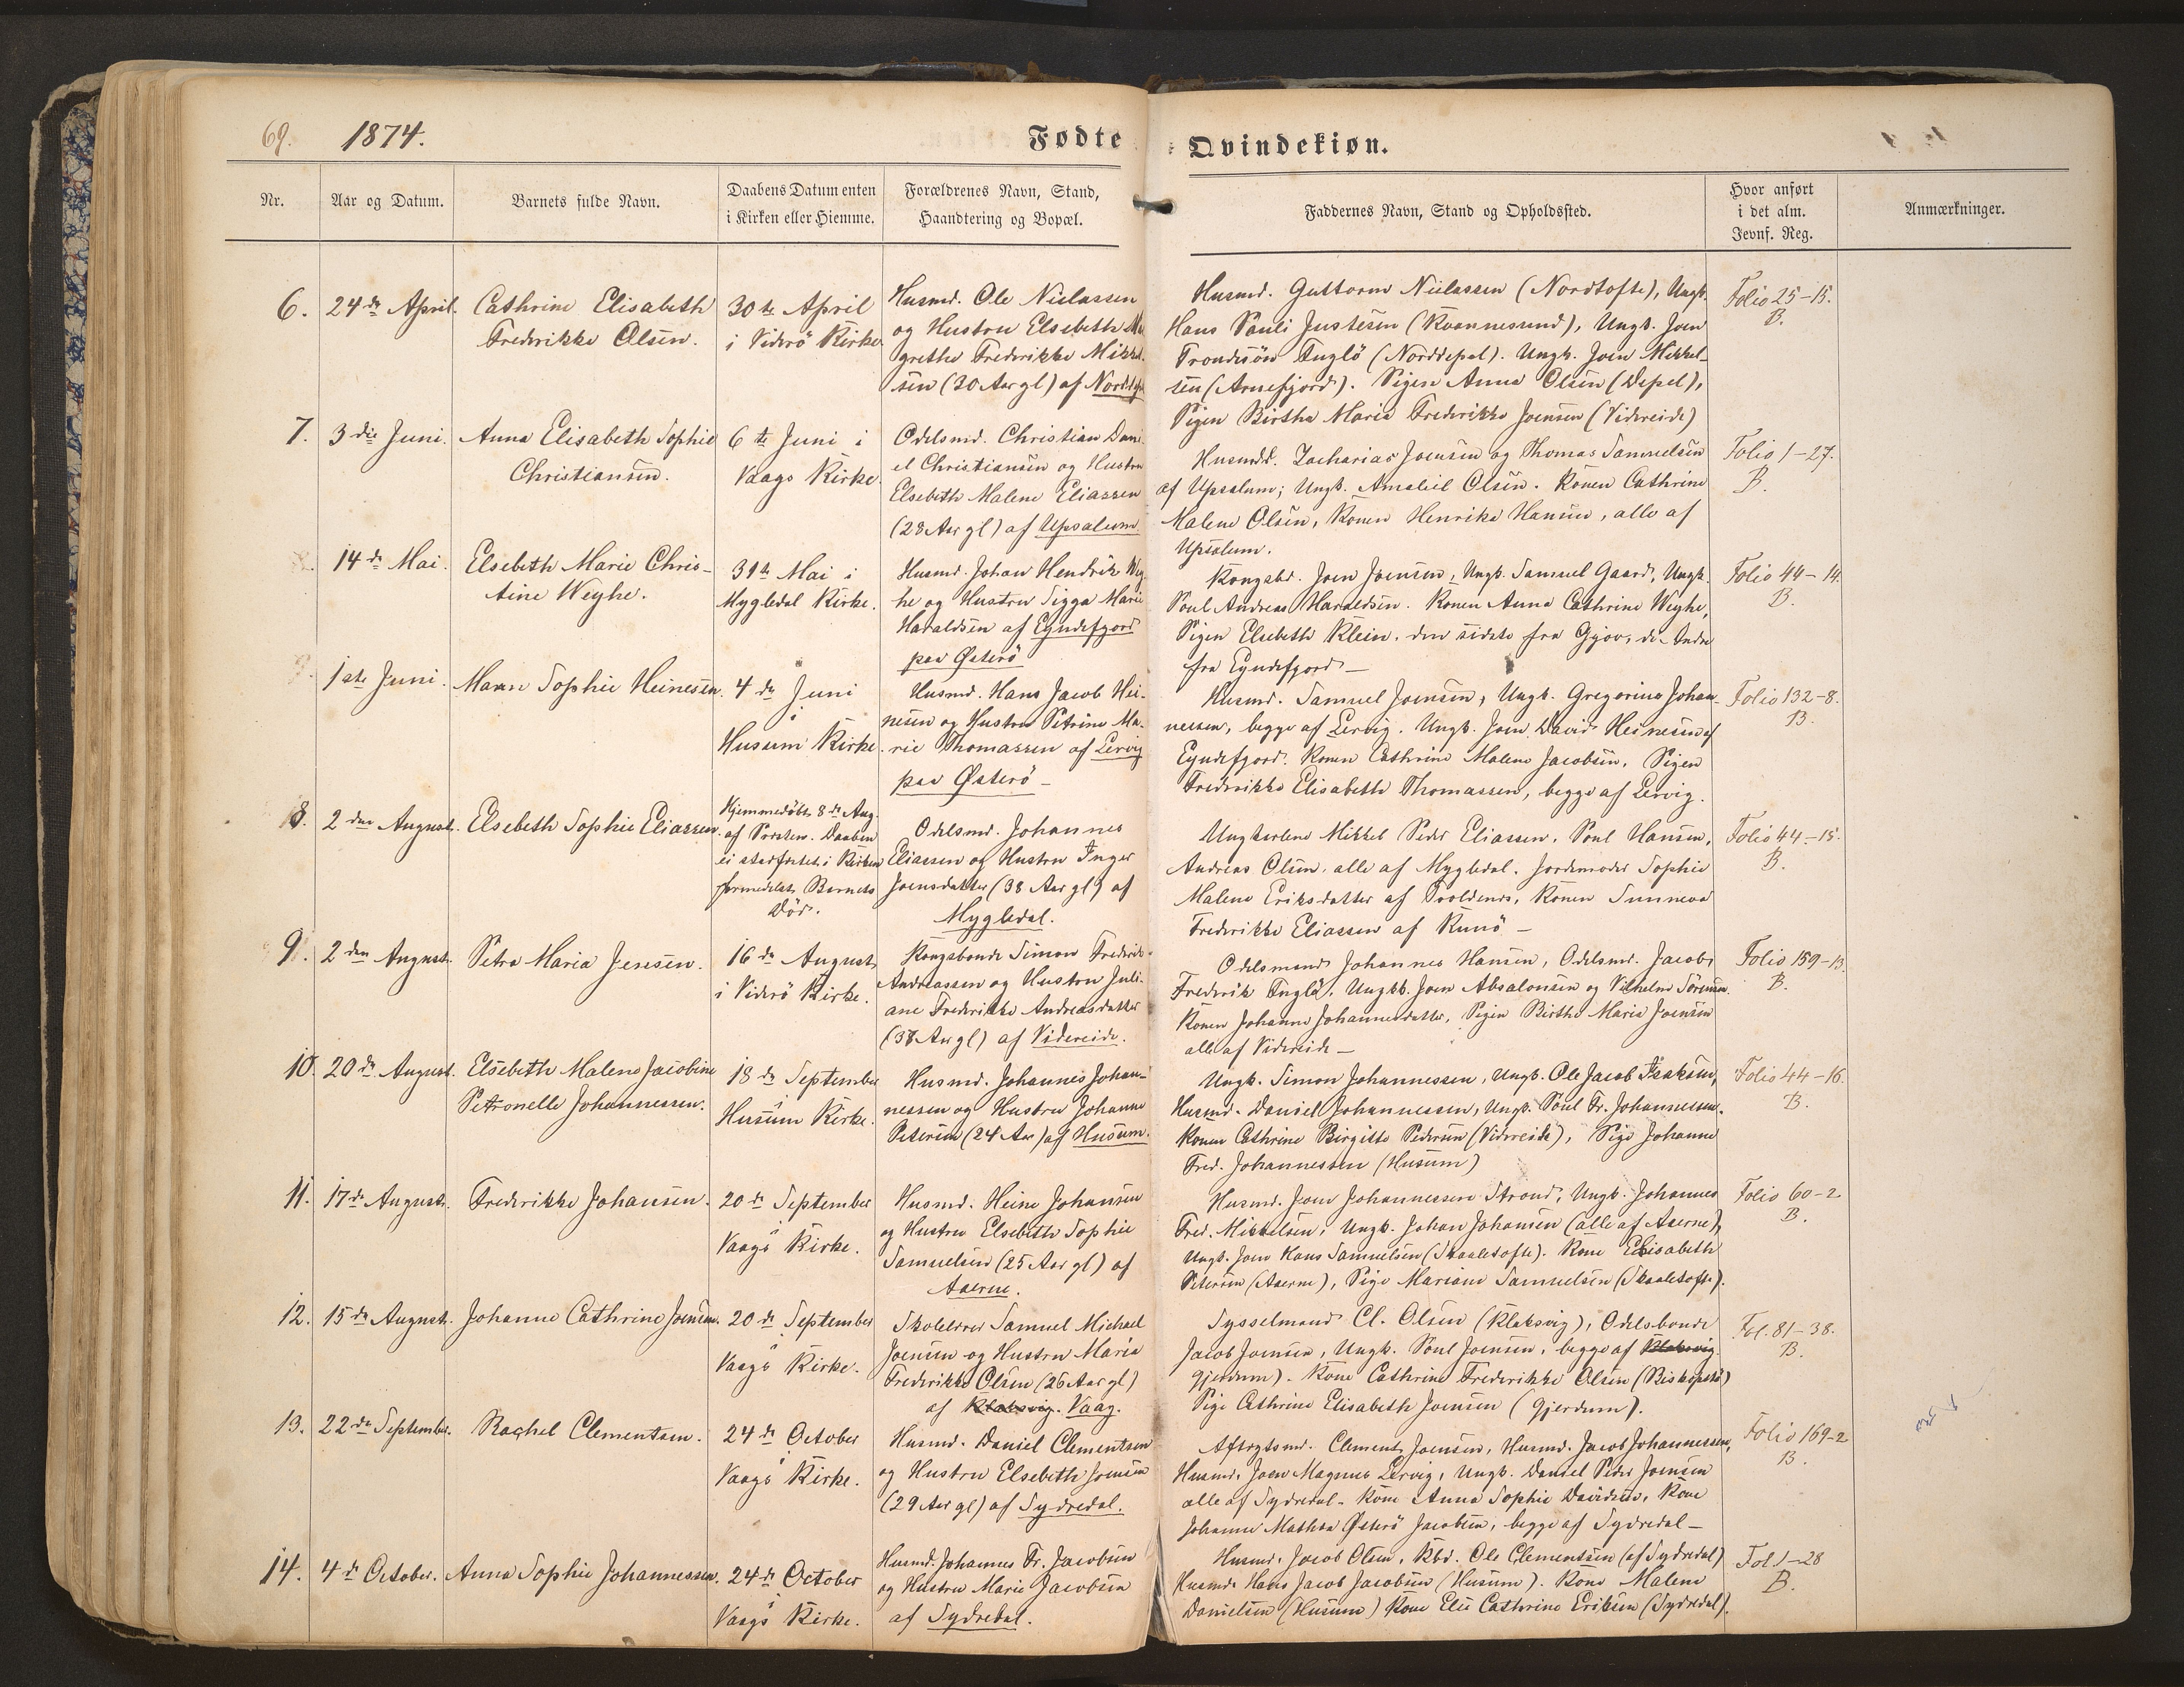 69. 1874. Fødte Qvindekiøn.
Nr. Aar og Datum. Barnets fulde Navn. Daabens Datum enten i Kirken eller Hiemme. Forældrenes Navn, Stand, Haandtering og Bopæl. Faddernes Navn, Stand og Opholdssted. Hvor anført i det alm. Jevnf. Reg. Anmærkninger.
6. 24de April. Cathrine Elisabeth
Frederikke Olsen.
30te April
i Viderö Kirke
Husmd. Ole Nielassen
og Hustru Elsebeth Ma
grethe Frederikke Mikkel-
sen (30 Aar gl) af Norddep
Husmd. Guttorm Nielassen (Nordtofte), Ungk.
Hans Pauli Justesen (Kvannesund), Ungk. Joen
Trondesön Fuglö (Norddepel). Ungk. Joen Mikkel-
sen (Arnefjord). Pigen Anna Olsen (Depel),
Pigen Birtha Maria Frederikke Joensen (Videreide)
Folio 25-15.
B.
7. 3die Juni. Anna Elisabeth Sophie
Christiansen.
6te Juni i
Vaags Kirke.
Odelsmd. Christian Dani-
el Christiansen og Hustru
Elsebeth Malene Eliassen
(28 Aar gl) af Upsalum.
Husmdd. Zacharias Joensen og Thomas Samuelsen
af Upsalum; Ungk. Amaliel Olsen. Konen Cathrine
Malene Olsen, Konen Henrika Hansen, alle af
Upsalum.
Folio 1-27.
B.
14de Mai. Elsebeth Marie Chris-
tine Weyhe.
31te Mai i
Mygledal Kirke.
Husmd. Johan Hendrik Wey
he og Hustru Sigga Marie
Haraldsen af Eyndefjord
paa Österö
Kongsbd. Joen Joensen, Ungk. Samuel Gaard, Ungk.
Poul Andreas Haraldsen. Konen Anna Cathrine Weyhe,
Pigen Elsebeth Klein, den sidste fra Gjov, de Andre
fra Eyndefjord —
Folio 44-14.
B.
1ste Juni. Maren Sophie Heinesen.
4de Juni
i
Husum Kirke.
Husmd. Hans Jacob Hei-
nesen og Hustru Petrine Ma-
rie Thomassen af Lervig
paa Österö —
Husmd. Samuel Joensen, Ungk. Gregorius Johan-
nessen, begge af Lervig. Ungk. Joen David Heinesen af
Eyndefjord. Konen Cathrine Malene Jacobsen, Pigen
Frederikke Elisabeth Thomassen, begge af Lervig.
Folio 132-8.
B.
8. 2den August. Elsebeth Sophie Eliassen.
Hjemmedöbt 8de Aug.
af Præsten. Daaben
ei stadfæstet i Kirken
formedelst Barnets
Död.
Odelsmd. Johannes
Eliassen og Hustru Inger
Joensdatter (38 Aar gl) af
Mygledal.
Ungkarlene Mikkel Peder Eliassen, Poul Hansen,
Andreas Olsen, alle af Mygledal. Jordemoder Sophie
Malene Eriksdatter af Troldenæs, Konen Sunneva
Frederikke Eliassen af Kunö —
Folio 44-15.
B.
9. 2den August. Petra Maria Jensen.
16de August
i Viderö Kirke.
Kongsbonde Simon Frederik
Andreassen og Hustru Juli-
ane Frederikke Andreasdatter
(38 Aar gl) af Videreide.
Odelsmand Johannes Hansen, Odelsmd. Jacob
Frederik Fuglö, Ungkk. Joen Absalonsen og Vilhelm Sörensen.
Konen Johanne Johannesdatter, Pigen Birthe Marie Joensen
alle af Videreide —
Folio 159-13.
B.
10. 20de August. Elsebeth Malene Jacobine
Petronelle Johannessen.
18de September
i
Husum Kirke.
Husmd. Johannes Johan-
nessen og Hustru Johanne
Petersen (24 Aar) af Husum.
Ungk. Simon Johannessen, Ungk. Ole Jacob Isaksen,
Husmd. Daniel Johannessen, Ungk. Poul Fr. Johannessen.
Konen Cathrine Birgitte Pedersen (Videreide), Pige Johanne
Fred. Johannessen (Husum)
Folio 44-16.
B.
11. 17de August. Frederikke Johansen.
20de September
i
Vaags Kirke.
Husmd. Heine Johansen
og Hustru Elsebeth Sophie
Samuelsen (25 Aar gl) af
Aaerne.
Husmd. Joen Johannessen Strond, Ungk. Johannes
Fred. Mikkelsen, Ungk. Johan Johansen (alle af Aaerne),
Ungk. Joen Hans Samuelsen (Skaaletofte). Kone Elisabeth
Petersen (Aaerne), Pige Mariane Samuelsen (Skaaletofte).
Folio 60-2
B.
12. 15de August. Johanne Cathrine Joensen.
20de September
i
Vaags Kirke.
Skolelærer Samuel Michael
Joensen og Hustru Maria
Frederikke Olsen (26 Aar gl)
af Klaksvig. Vaag.
Sysselmand Cl. Olsen (Klaksvig), Odelsbonde
Jacob Joensen, Ungk. Poul Joensen, begge af Klaksvig.
Gjerdum). Kone Cathrine Frederikke Olsen (Biskopstö)
Pige Cathrine Elisabeth Joensen (Gjerdum).
Fol. 81-38.
B.
13. 22de September. Rachel Clementsen.
24de October
i
Vaags Kirke.
Husmd. Daniel Clementsen
og Hustru Elsebeth Joensen
(29 Aar gl) af Sydredal.
Aftægtsmd. Clement Joensen, Husmd. Jacob Johannessen,
Husmd. Joen Magnus Lervig, Ungk. Daniel Peder Joensen
alle af Sydredal. Kone Anna Sophie Davidsen, Kone
Johanne Mathea Österö Jacobsen, begge af Sydredal —
Folio 169-2
B.
14. 4de October. Anna Sophie Johannessen.
24de October
i
Vaags Kirke.
Husmd. Johannes Fr. Jacobsen
og Hustru Marie Jacobsen
af Sydredal.
Husmd. Jacob Olsen, Kbd. Ole Clementsen (af Sydredal)
Husmd. Hans Jacob Jacobsen (Husum). Kone Malene
Danielsen (Husum) Kone Else Cathrine Eriksen (Sydredal).
Fol 1-28
B.